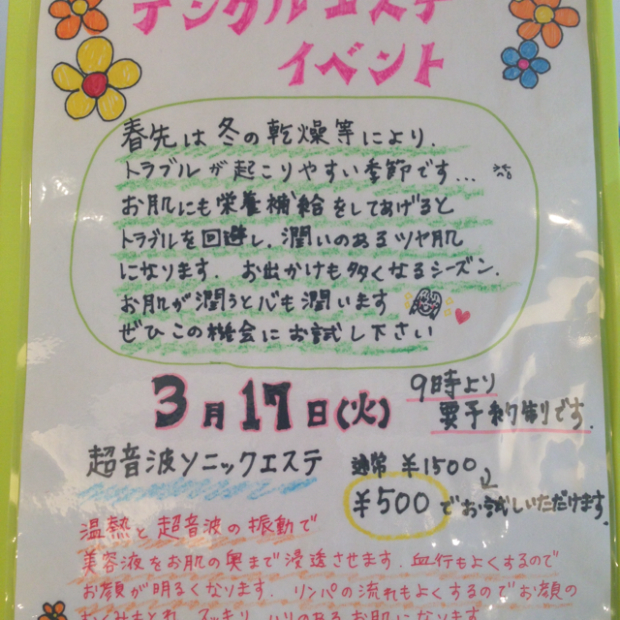 デジタルエステ
イベント
春先は冬の乾燥等により、
トラブルが起こりやすい季節です...
お肌にも栄養補給をしてあげると
トラブルを回避し、潤いのあるツヤ肌
になります. お出かけも多くなるシーズン.
お肌が潤うと心も潤います
ぜひこの機会にお試し下さい
3月17日(火)
9時より
要予約制です.
超音波ソニックエステ
通常 ¥1500
¥500でお試しいただけます.
温熱と超音波の振動で
美容液をお肌の奥まで浸透させます. 血行もよくするので
お顔が明るくなります. リンパの流れもよくするのでお顔の
むくみもとれ、スッキリ、ハリのあるお肌になります